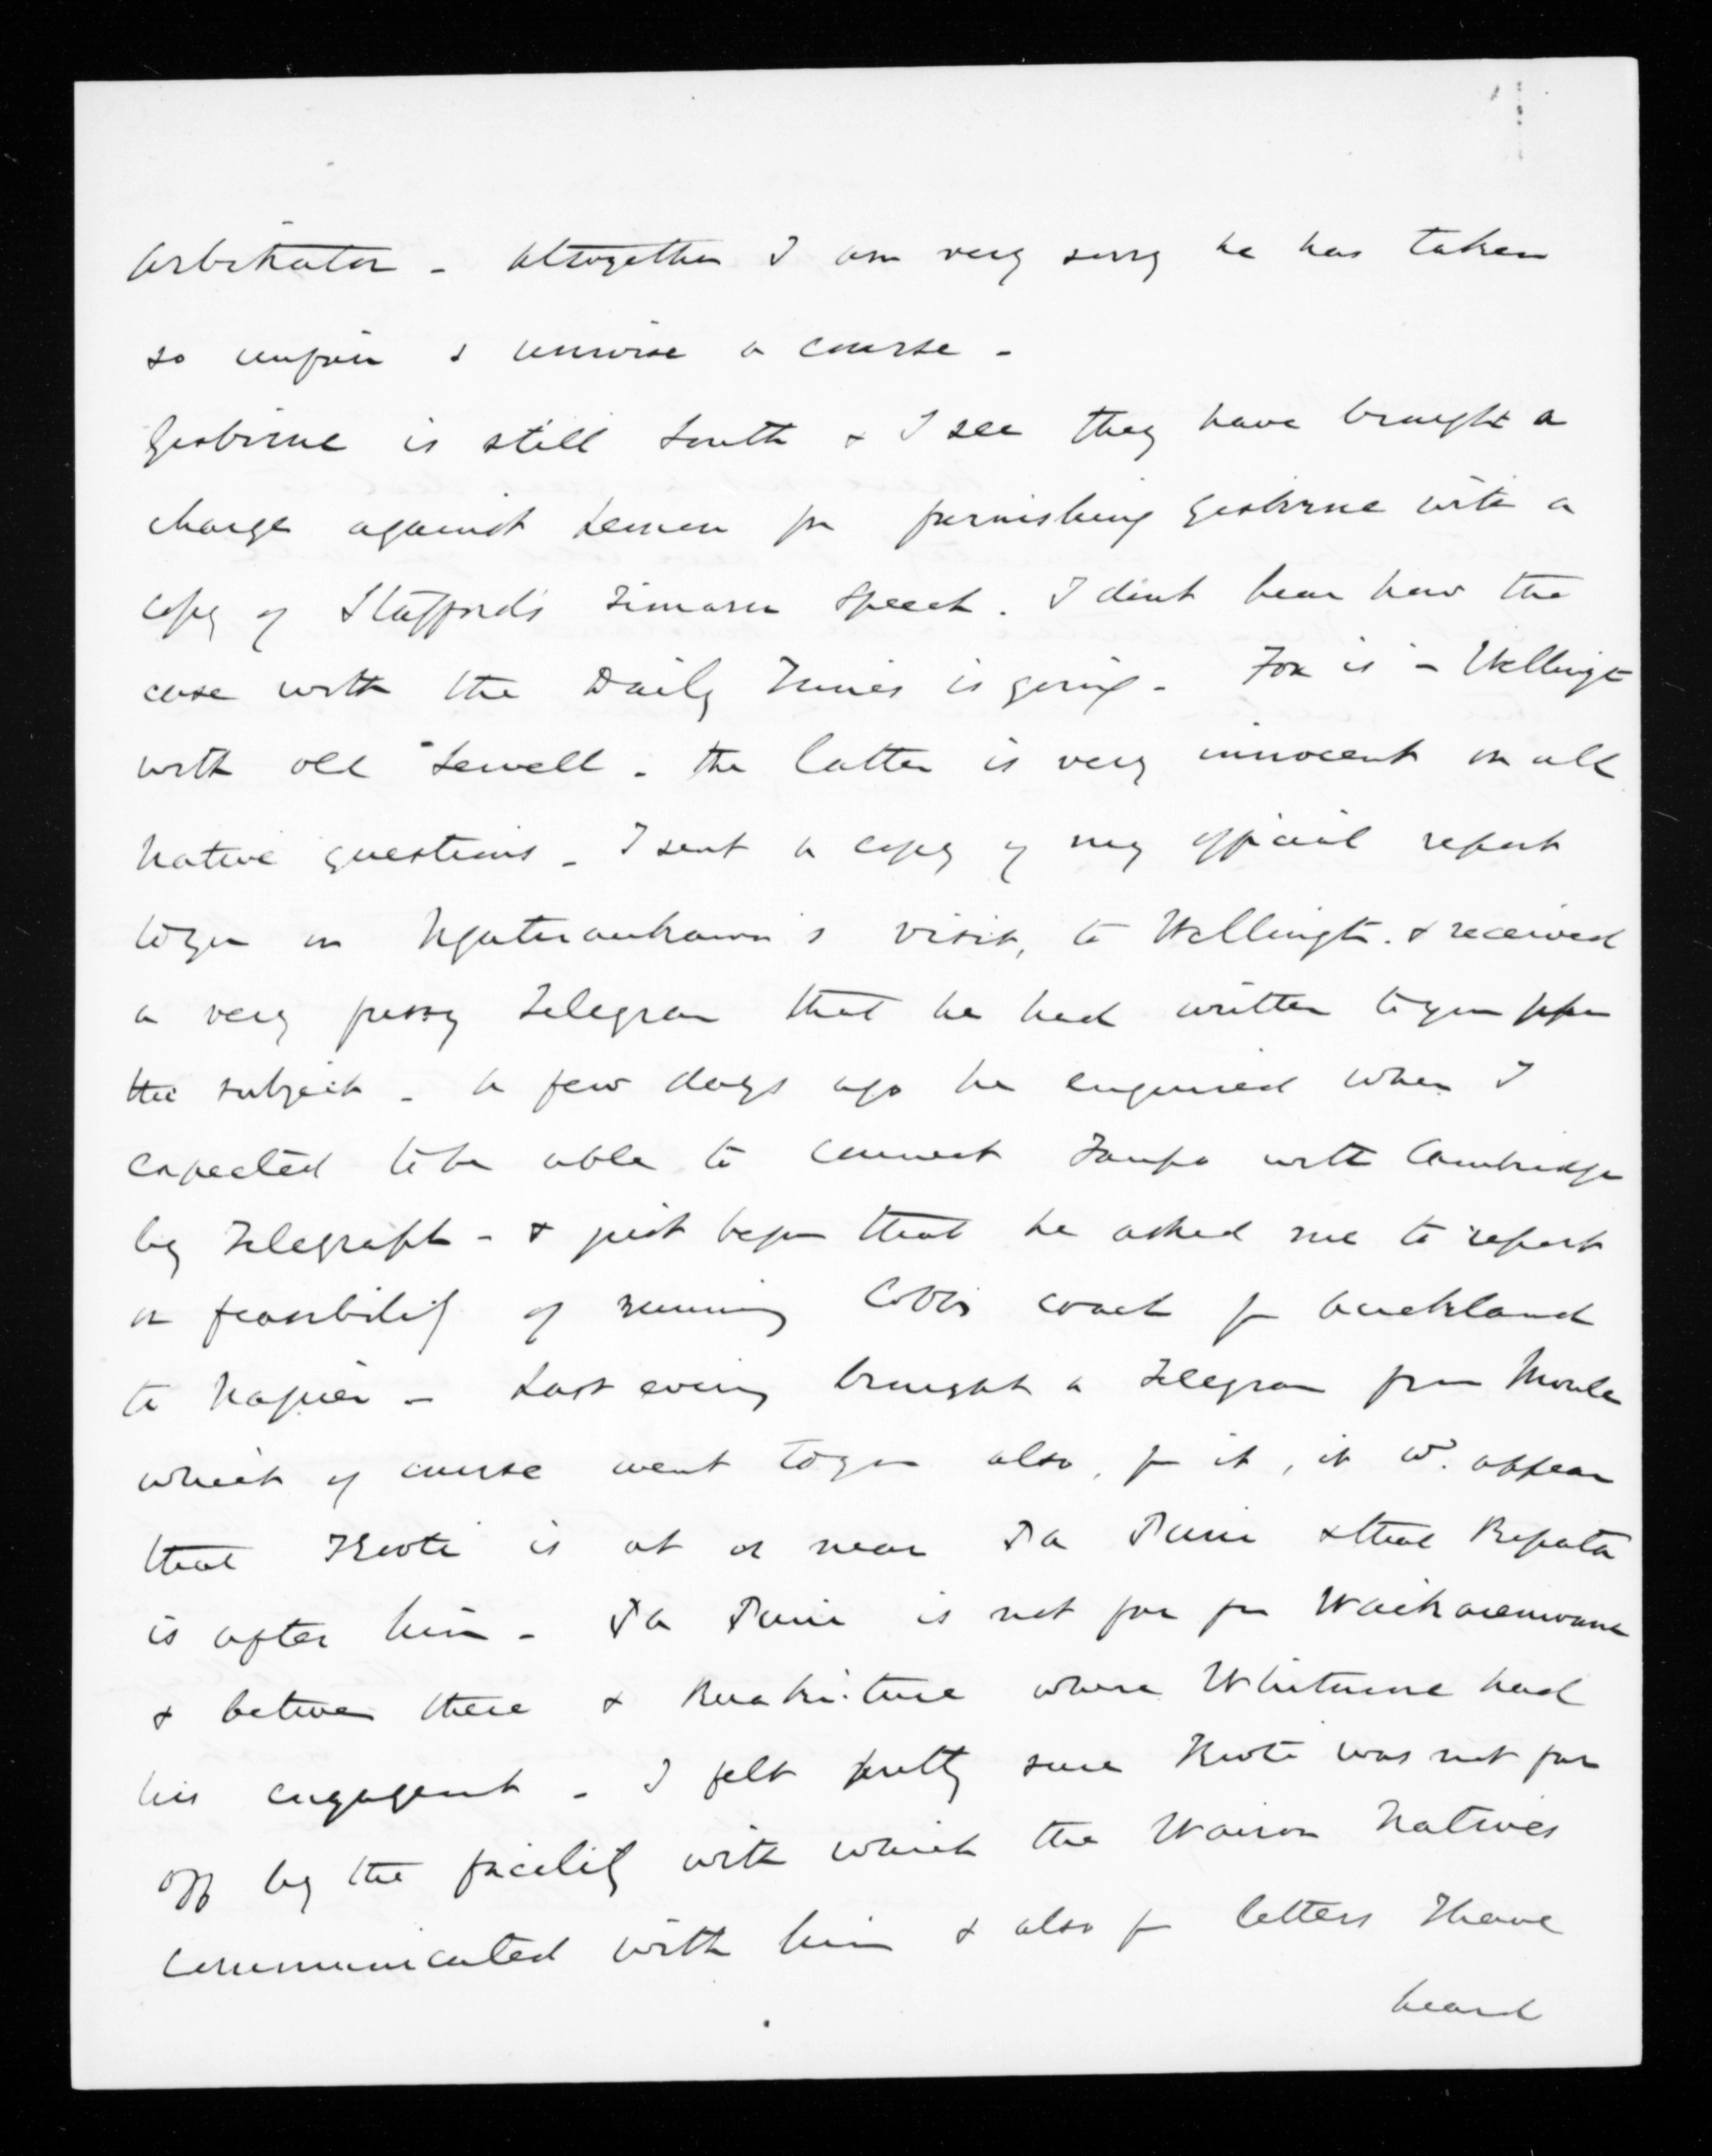 arbitrator - Altogether I am very sorry he has taken
so unfair & unwise a course -
Gisborne is still South & I see they have brought a
charge against Lemon for furnishing Gisborne with a
copy of Stafford's Timaru Speech. I dont hear how the
case with the Daily Times is going - Fox is in Wellingt
with old Sewell - the latter is very innocent in all
Native questions - I sent a copy of my official report
to you on visit, to Wellingt. & received
a very fussy Telegram that he had written to you upon
the subject - A few days ago he enquired when I
expected to be able to connect Taupo with Cambridge
by Telegraph - & just before that he asked me to report
on feasibility of running Cobb's coach fr Auckland
to Napier - Last evening brought a Telegram from Moule
which of course went to you also, fr it, it wd. appear
that Kooti is at or near Te Papuni & that Ropata
is after him - is not far fr Waikaremoana
& between there & Ruakiture where Whitmore had
his engagement - I felt pretty sure Kooti was not far
off by the facility with which the Wairoa Natives
communicated with him & also fr letters I have
heard